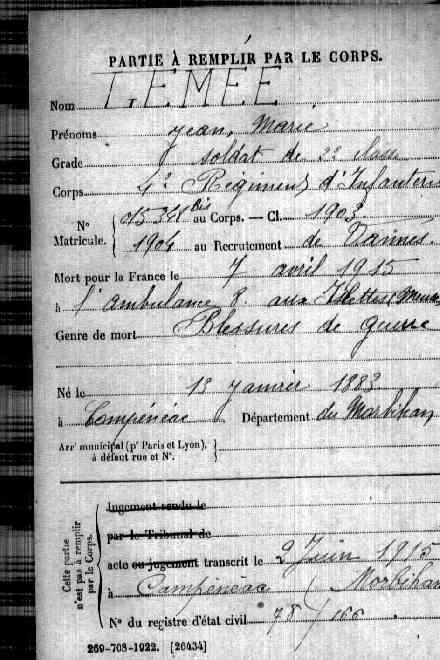 PARTIE À REMPLIR PAR LE CORPS.
Nom LEMÉE
Prénoms Jean, Marie
Grade soldat de 2e classe
Corps 4e Régiment d'Infanterie
N° Matricule. { 015348 bis au Corps. — Cl. 1903
1904 au Recrutement de Vannes.
Mort pour la France le 7 avril 1915
à l'ambulance 8. aux Islettes (Meuse
Genre de mort Blessures de guerre
Né le 13 janvier 1883
à Campénéac Département du Morbihan
Arrt municipal (pr Paris et Lyon), à défaut rue et N°. }
Cette partie n'est pas à remplir par le Corps.
Jugement rendu le
par le Tribunal de
acte ou jugement transcrit le 2 Juin 1915
à Campénéac (Morbihan
N° du registre d'état civil 78/166
269-708-1922. [26434]